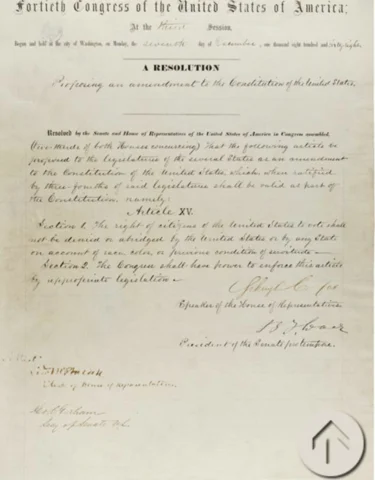 Fortieth Congress of the United States of America;
At the third Session,
Begun and held at the city of Washington, on Monday, the seventh day of December, one thousand eight hundred and sixty-eight.
A RESOLUTION
Proposing an amendment to the Constitution of the United States.
Resolved by the Senate and House of Representatives of the United States of America in Congress assembled,
(two-thirds of both Houses concurring) That the following article be
proposed to the legislatures of the several States as an amendment
to the Constitution of the United States which, when ratified
by three-fourths of said legislatures shall be valid as part of
the Constitution, namely:
Article XV.
Section 1. The right of citizens of the United States to vote shall
not be denied or abridged by the United States or by any State
on account of race, color, or previous condition of servitude—
Section 2. The Congress shall have power to enforce this article
by appropriate legislation—
Speaker of the House of Representatives.
President of the Senate pro tempore.
Attest
Clerk of House of Representatives.
Geo C Gorham
Secy of Senate U.S.